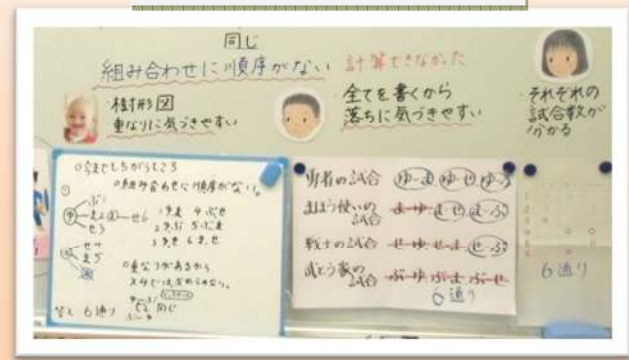 同じ
組み合わせに順序がない
計算できなかった
・樹形図
重なりに気づきやすい
・全てを書くから
落ちに気づきやすい
・それぞれの
試合数が
分かる
○今までとちがうところ
○組み合わせに順序がない。
①
○重なりがあるから
答え 6通り
同じ
勇者の試合 ゆ-ま ゆ-せ ゆ-ぶ
まほう使いの試合 ま-ゆ ま-せ ま-ぶ
戦士の試合 せ-ゆ せ-ま せ-ぶ
武とう家の試合 ぶ-ゆ ぶ-ま ぶ-せ
6通り
6通り